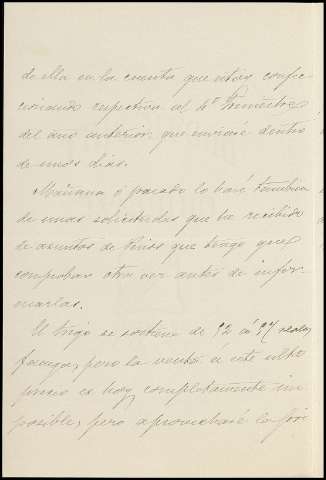 de ella en la cuenta que estoy confec-
cionando respectiva al 4º trimestre
del año anterior, que enviaré dentro
de unos dias.
Mañana ó pasado lo haré tambien
de unas solicitudes que he recibido
de asuntos de que tengo que
comprobar otra vez antes de infor-
marlas.
El trigo se sostiene de á 27 reales
fanega, pero la venta a este ulti-
precio es hoy completamente im-
posible, pero aprovecharé la